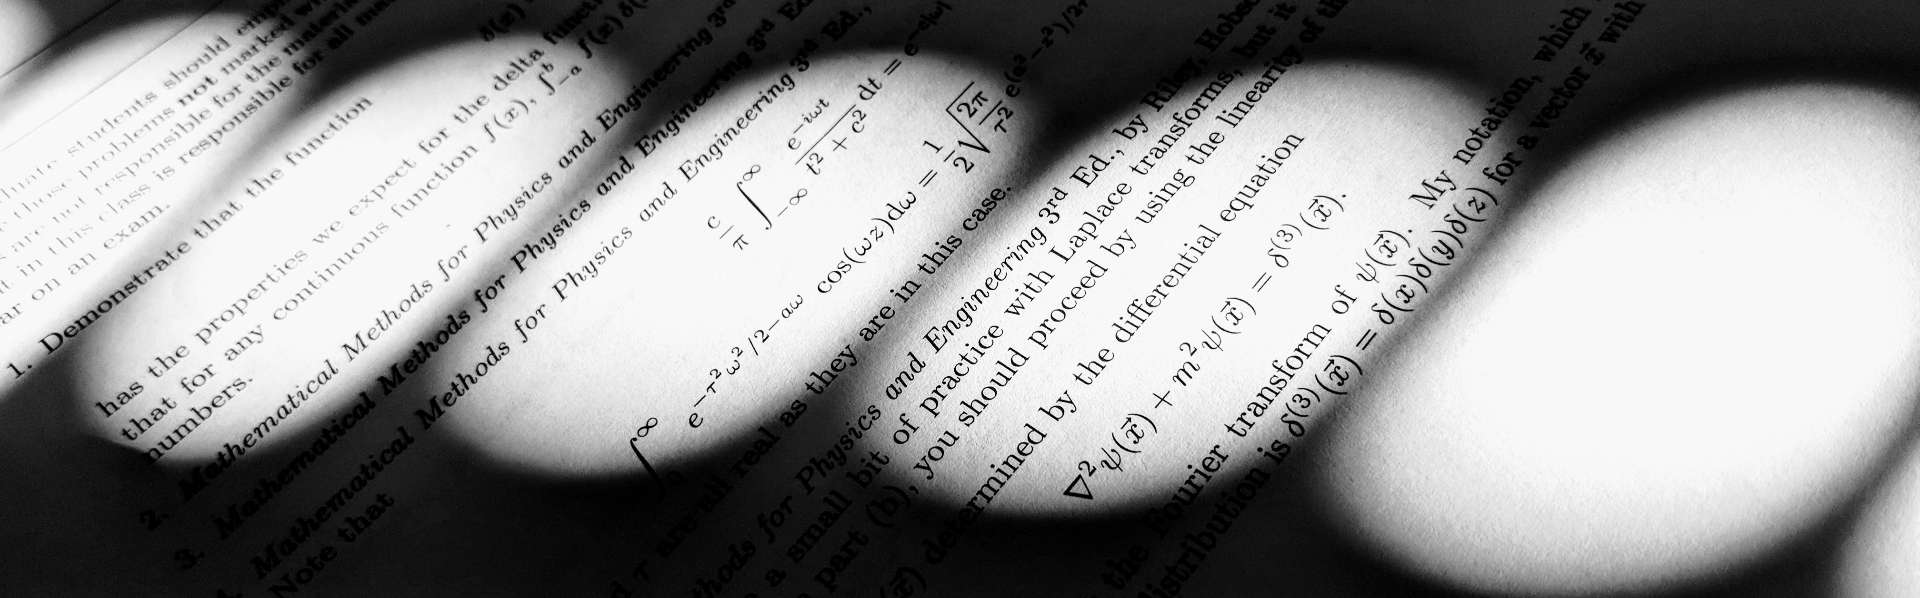 students should
those problems not marked
are not responsible for the material
in this class is responsible for all
ar on an exam.
1. Demonstrate that the function
δ(x)
has the properties we expect for the delta function
that for any continuous function f(x), ∫_{-a}^{b} f(x) δ(
numbers.
2. Mathematical Methods for Physics and Engineering 3rd
3. Mathematical Methods for Physics and Engineering 3rd Ed
4. Mathematical Methods for Physics and Engineering 3rd Ed.,
Note that
c/π ∫_{-∞}^{∞} e^{-iωt}/(t² + c²) dt = e^{-c|ω|}
∫_{0}^{∞} e^{-τ²ω²/2-aω} cos(ωz)dω = 1/2 √(2π/τ²) e(
τ are all real as they are in this case.
thods for Physics and Engineering 3rd Ed., by Riley, Hobs
a small bit of practice with Laplace transforms, but it
part (b), you should proceed by using the linearity of th
(x⃗) determined by the differential equation
∇²ψ(x⃗) + m²ψ(x⃗) = δ⁽³⁾(x⃗).
the Fourier transform of ψ(x⃗). My notation, which
distribution is δ⁽³⁾(x⃗) = δ(x)δ(y)δ(z) for a vector x⃗ with